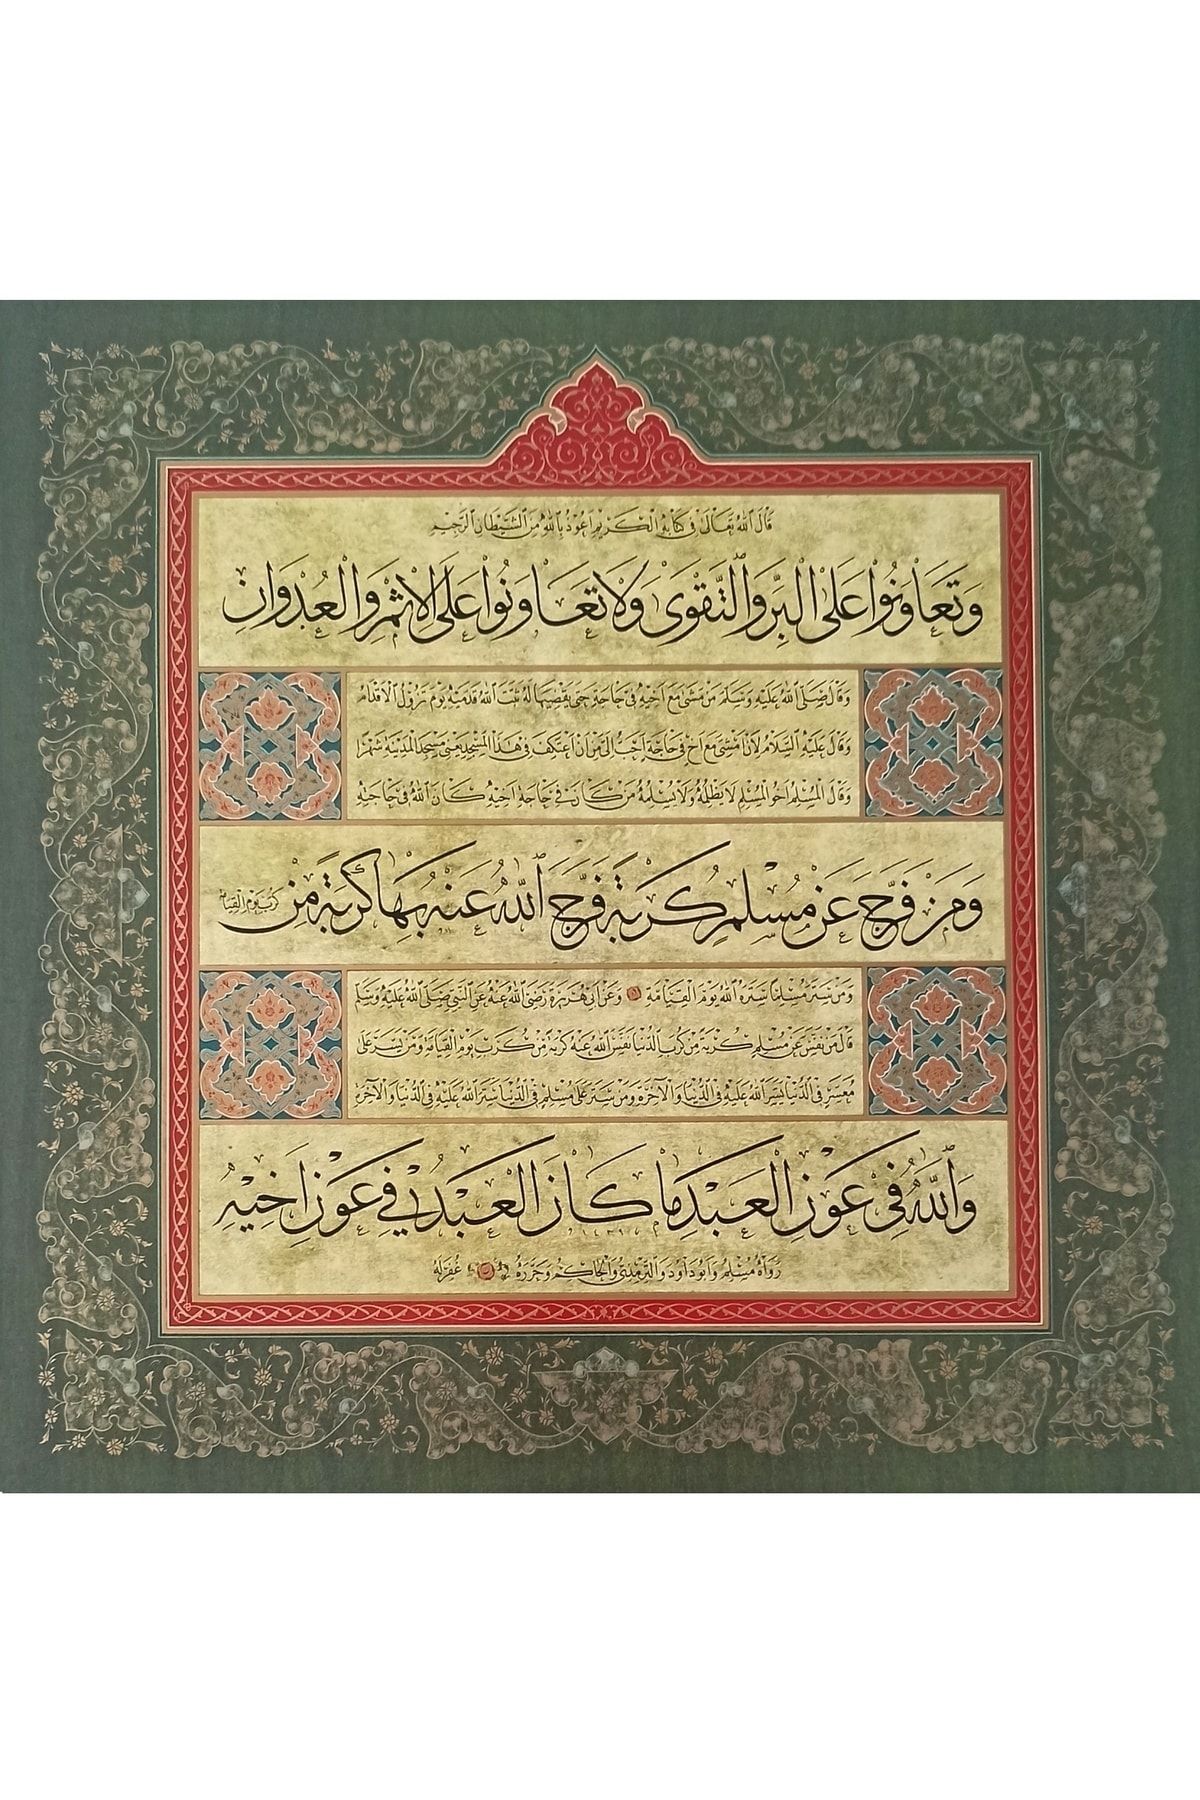 قال الله تعالى في كتابه الكريم اعوذ بالله من الشيطان الرجيم
وَتَعَاوَنُوا عَلَى الْبِرِّ وَالتَّقْوَىٰ وَلَا تَعَاوَنُوا عَلَى الْاِثْمِ وَالْعُدْوَانِ
وقال صلى الله عليه وسلم من مشى مع اخيه في حاجة حتى يقضيها له ثبت الله قدميه يوم تزول الاقدام
وقال عليه السلام لان امشى مع اخ في حاجة احب الى من ان اعتكف في هذا المسجد يعنى مسجد المدينة شهرا
وقال المسلم اخو المسلم لا يظلمه ولا يسلمه من كان في حاجة اخيه كان الله في حاجته
وَمَنْ فَرَّجَ عَنْ مُسْلِمٍ كُرْبَةً فَرَّجَ اللهُ عَنْهُ بِهَا كُرْبَةً مِنْ كرب يوم القيامة
ومن ستر مسلما ستره الله يوم القيامة وعن ابى هريرة رضى الله عنه عن النبي صلى الله عليه وسلم
قال من نفس عن مسلم كربة من كرب الدنيا نفس الله عنه كربة من كرب يوم القيامة ومن يسر على
معسر في الدنيا يسر الله عليه في الدنيا والآخرة ومن ستر على مسلم في الدنيا ستر الله عليه في الدنيا والآخرة
وَاللهُ فِي عَوْنِ الْعَبْدِ مَا كَانَ الْعَبْدُ فِي عَوْنِ اَخِيهِ
رواه مسلم وابو داود والترمذى والحاكم وحرره غفر له